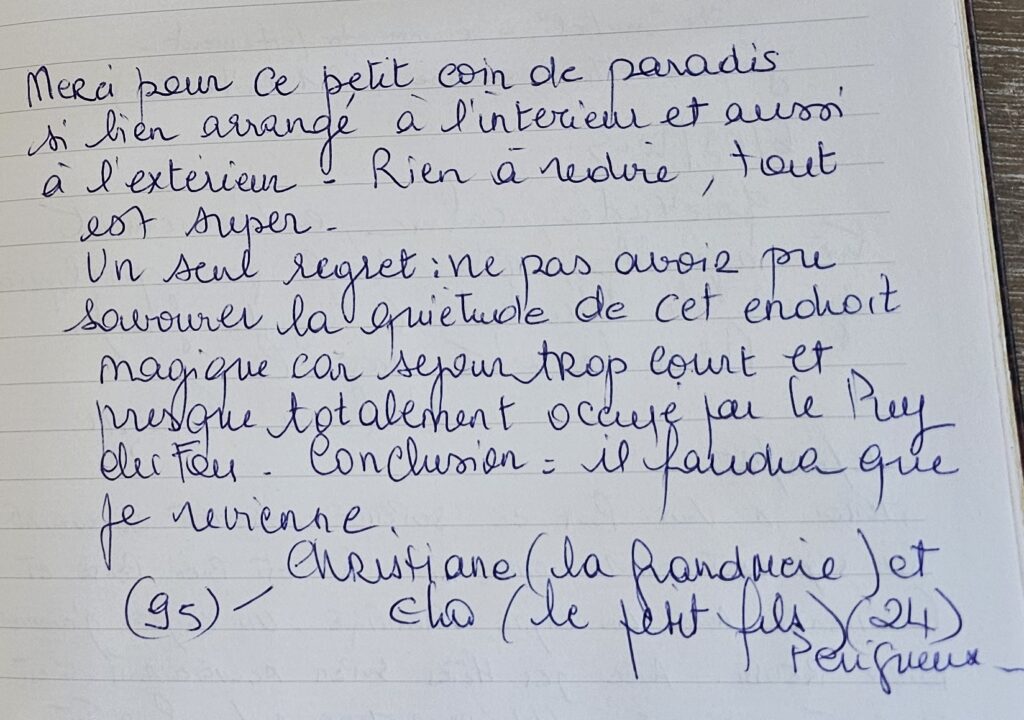 Merci pour ce petit coin de paradis
si bien arrangé à l'intérieur et aussi
à l'extérieur - Rien à redire, tout
est super -
Un seul regret : ne pas avoir pu
savourer la quiétude de cet endroit
magique car séjour trop court et
presque totalement occupé par le Puy
du Fou - Conclusion = il faudra que
je revienne.
Christiane (la grand mère) et
(95) - (le petit fils) (24)
Périgueux -